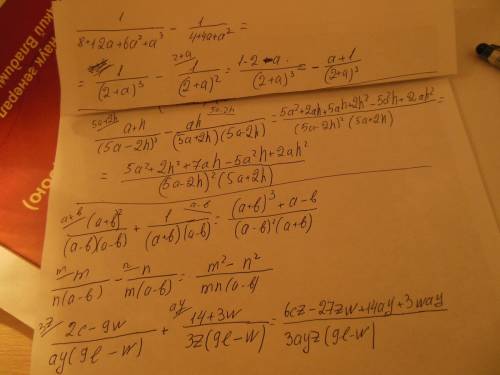 1/(8+12a+6a²+a³) - 1/(4+4a+a²) =
= 1/(2+a)³ - 1/(2+a)² (2+a) = (1-2-a)/(2+a)³ = - (a+1)/(2+a)³
5a+2h (a+h)/(5a-2h)² - 5a-2h ah/((5a+2h)(5a-2h)) = (5a²+2ah+5ah+2h²-5a²h+2ah²)/((5a-2h)²(5a+2h)) =
= (5a²+2h²+7ah-5a²h+2ah²)/((5a-2h)²(5a+2h))
a+b (a+b)²/((a-b)(a-b)) + a-b 1/((a+b)(a-b)) = ((a+b)³+a-b)/((a-b)²(a+b))
m m/(n(a-b)) - n n/(m(a-b)) = (m²-n²)/(mn(a-b))
3z (2c-9w)/(ay(9l-w)) + ay (14+3w)/(3z(9l-w)) = (6cz-27zw+14ay+3way)/(3ayz(9l-w)
генерал
кий Владим